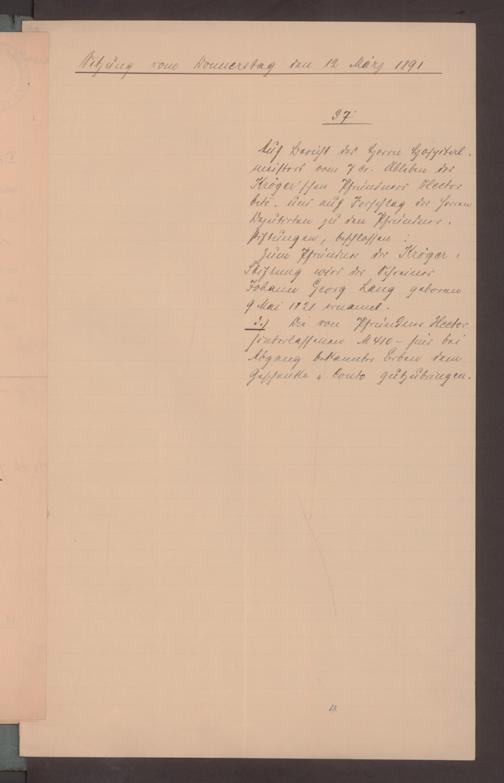 Sitzung vom Donnerstag den 12 März 1891
97.
Auf Bericht des Herrn Hospital-
meisters vom 7 cr. Ableben des
Kröger'schen Pfründners Hector
betr. und auf Vorschlag der Herren
Deputirten zu den Pfründner-
stiftungen, beschlossen:
Zum Pfründner der Kröger-
Stiftung wird der Schreiner
Johann Georg Lang geboren
9 Mai 1821 ernannt.
2.) Die von Pfründner Hector
hinterlassenen M 410- sind bei
Abgang bekannter Erben dem
Geschenke Conto gutzubringen.